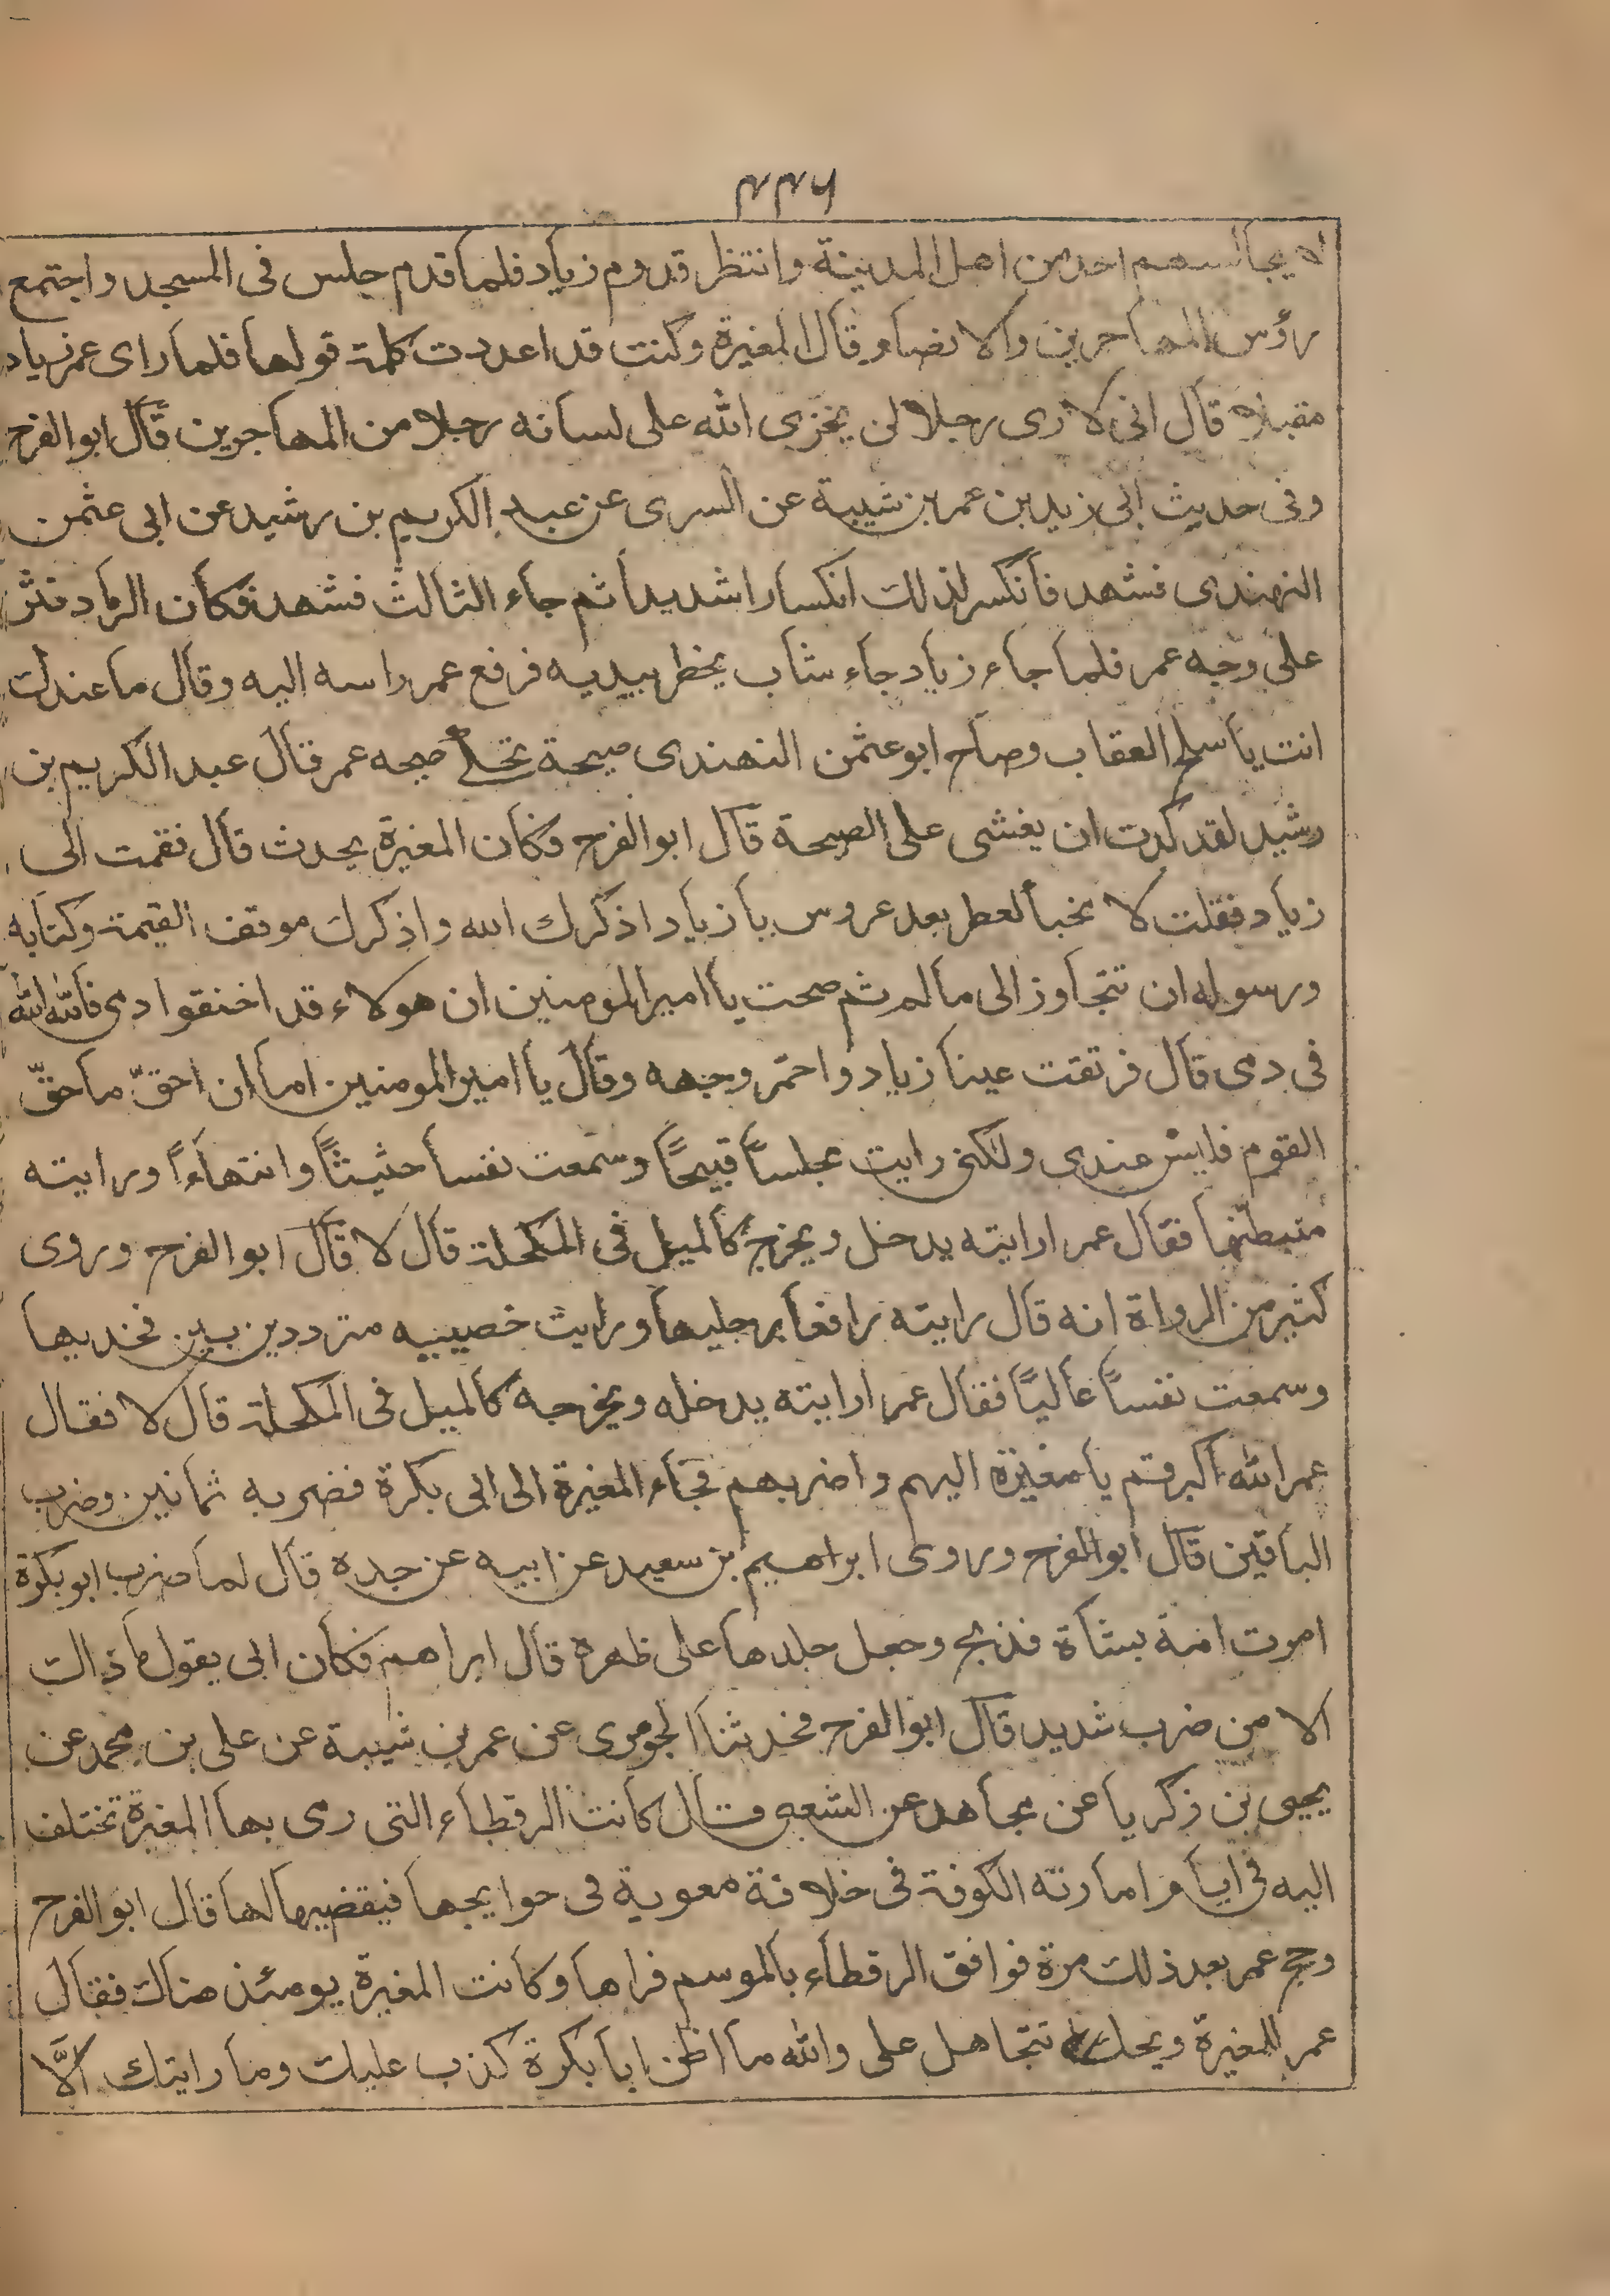 ٣٣٦
لا يجالسهم احد من اهل المدينة وانتظر قدوم زياد فلما قدم جلس فى المسجد واجتمع
رؤس المهاجرين والانصار قال المغيرة وكنت قد اعددت كلمة قولها فلما راى عمر زياد
مقبلا قال انى لارى رجلا لن يخزى الله على لسانه رجلا من المهاجرين قال ابو الفرح
وفى حديث ابى زيد بن عمر بن شيبة عن السرى عن عبد الكريم بن رشيد عن ابى عثمن
النهندى فشهد فأنكسر لذلك انكسارا شديدا ثم جاء الثالث فشهد فكان الرماد فنثر
على وجه عمر فلما جاء زياد جاء شاب يخطر بيديه فرفع عمر راسه اليه وقال ما عندك
انت يا سلح العقاب وصاح ابو عثمن النهندى صيحة تحكى صيحه عمر قال عبد الكريم بن
رشيد لقد كدت ان يغشى على الصيحة قال ابو الفرح فكان المغيرة يحدث قال فقمت الى
زياد فقلت لا مخبأ لعطر بعد عروس يا زياد اذكرك الله واذكرك موقف القيمة وكتابه
ورسوله ان تتجاوز الى مالم ثم صحت يا امير المومنين ان هولاء قد اخنقوا دمى فالله الله
فى دمى قال فرتقت عينا زياد واحمّر وجهه وقال يا امير المومنين اما ان احقّ ما حقّ
القوم فليس عندى ولكنى رايت مجلساً قبيحًا وسمعت نفسا حثيثًا وانتهاءاً ورايته
متبطّنها فقال عمر ارايته يدخل ويخرج كالميل فى المكحلة قال لا قال ابو الفرح وروى
كثير من الرواة انه قال رايته رافعا برجليها ورايت خصييه مترددين بين فخديها
وسمعت نفساً عاليًا فقال عمر ارايته يدخله ويخرجه كالميل فى المكحلة قال لا فقال
عمر الله اكبر قم يا مغيرة اليهم واضربهم فجاء المغيرة الى ابى بكرة فضربه ثمانين وضرب
الباقين قال ابو الفرح وروى ابراهيم بن سعيد عن ابيه عن جده قال لما ضرب ابو بكرة
اموت امة بشاة فذبح وجعل جلدها على ظهره قال ابراهيم فكان ابى يقول ما ذالك
الا من ضرب شديد قال ابو الفرح فحدثنا الجوهرى عن عمر بن شيبة عن على بن محمد عن
يحيى بن زكريا عن مجاهد عن الشعبى قال كانت الرقطاء التى رمى بها المغيرة تختلف
اليه فى ايام امارته الكوفة فى خلافة معوية فى حوايجها فيقضيها لها قال ابو الفرح
وحج عمر بعد ذلك مرة فوافق الرقطاء بالموسم فراها وكانت المغيرة يومئذ هناك فقال
عمر للمغيرة ويحك تتجاهل على والله ما اظن ابا بكرة كذب عليك وما رايتك الّا